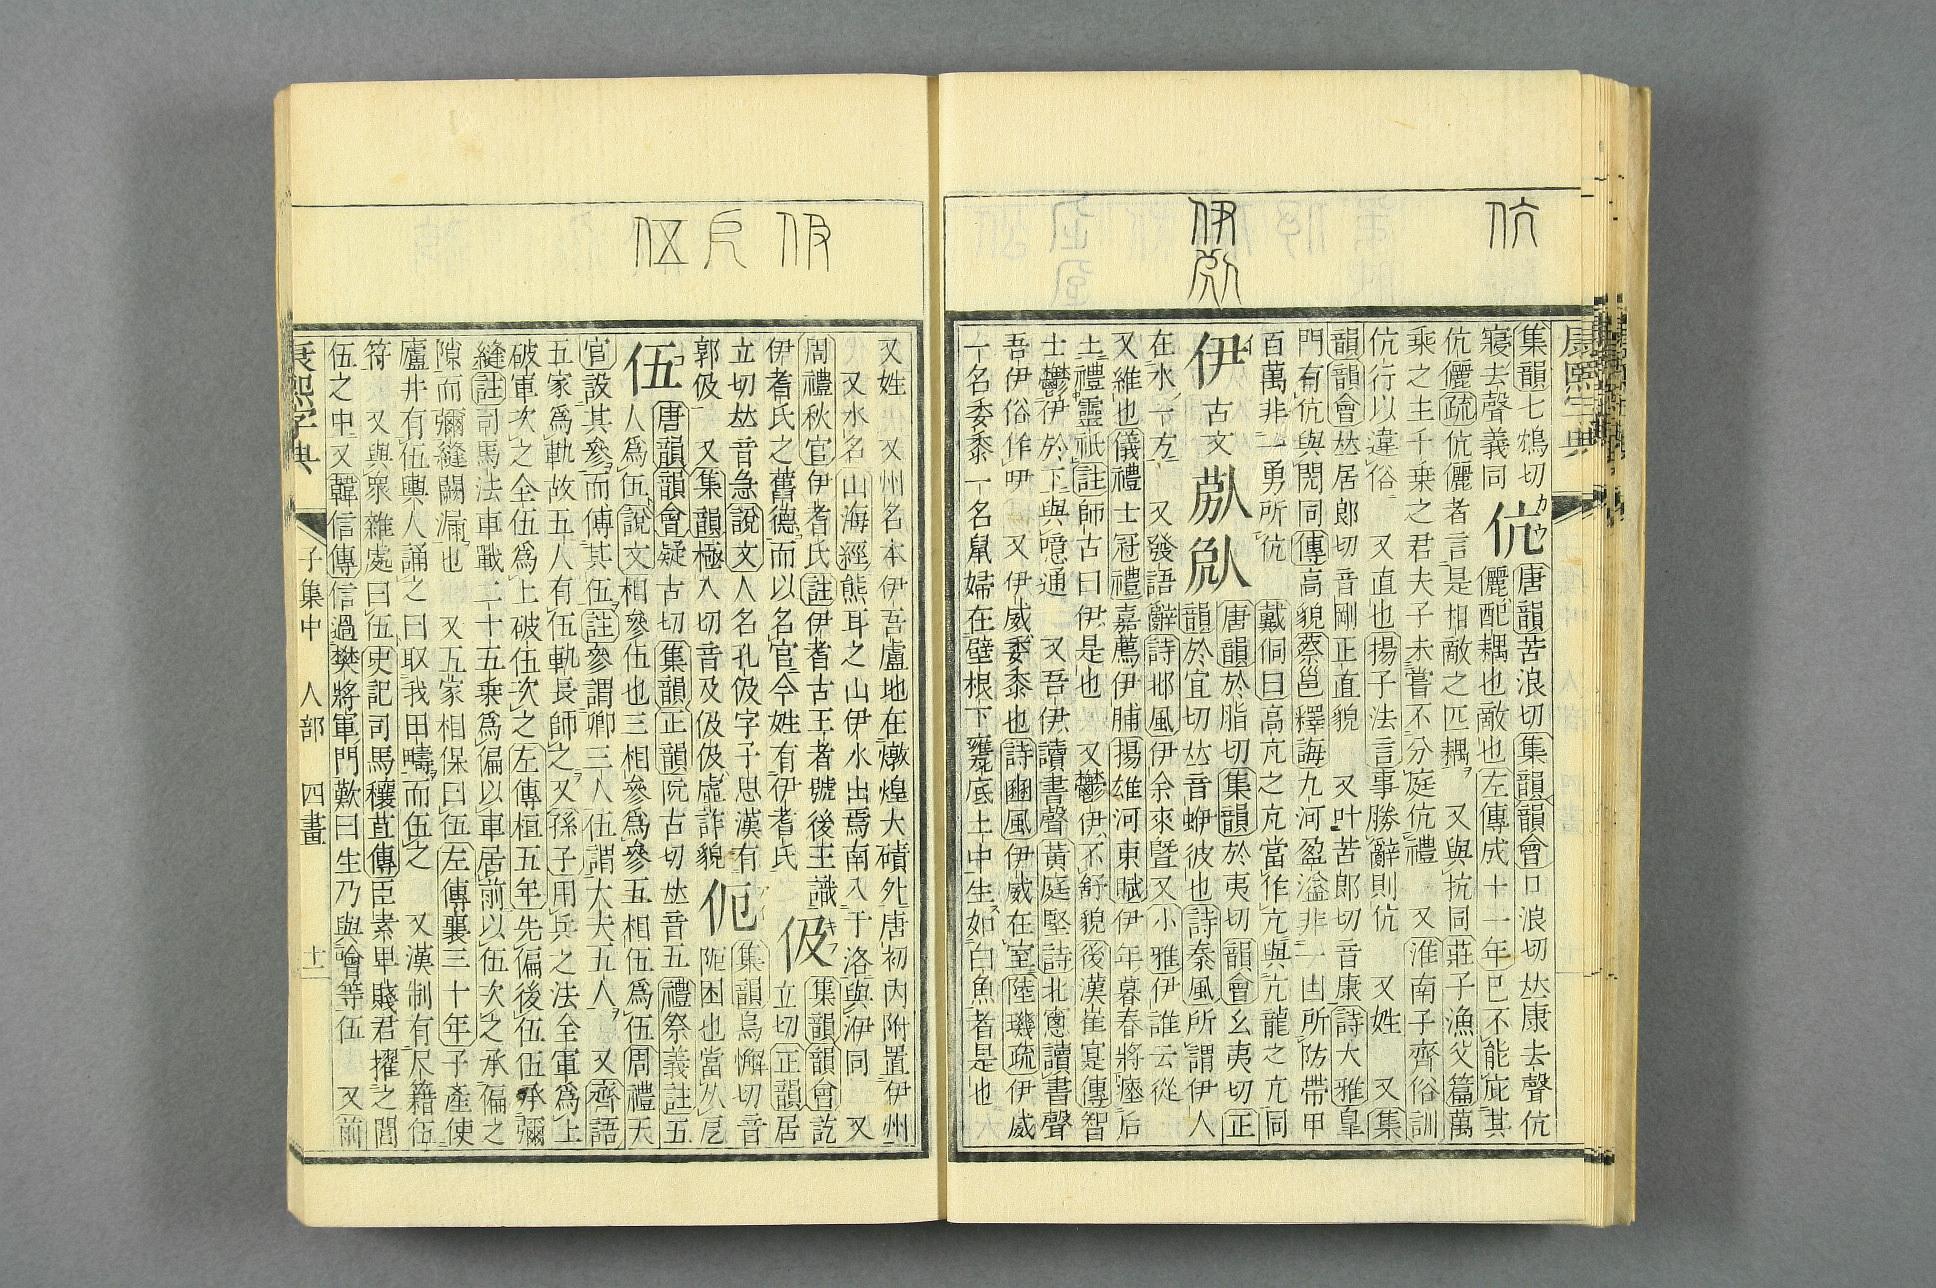 伉
伊
康熙字典
集韻七鴆切
寢去聲義同 伉 唐韻苦浪切集韻韻會口浪切𠀤康去聲伉
儷配耦也敵也左傳成十一年已不能庇其
伉儷疏伉儷者言是相敵之匹耦 又與抗同莊子漁父篇萬
乘之主千乘之君夫子未嘗不分庭伉禮 又淮南子齊俗訓
伉行以違俗 又直也揚子法言事勝辭則伉 又姓 又集
韻韻會𠀤居郎切音剛正直貌 又叶苦郎切音康詩大雅臯
門有伉與閌同傳高貌蔡邕釋誨九河盈溢非一凷所防帶甲
百萬非一勇所伉 戴侗曰高亢之亢當作亢與亢龍之亢同
伊 古文 唐韻於脂切集韻於夷切韻會幺夷切正
韻於宜切𠀤音蛜彼也詩秦風所謂伊人
在水一方 又發語辭詩邶風伊余來曁又小雅伊誰云從
又維也儀禮士冠禮嘉薦伊脯揚雄河東賦伊年暮春將瘞后
土禮靈祇註師古曰伊是也 又鬱伊不舒貌後漢崔寔傳智
士鬱伊於下與噫通 又吾伊讀書聲黃庭堅詩北窻讀書聲
吾伊俗作吚 又伊威委黍也詩豳風伊威在室陸璣疏伊威
一名委黍一名鼠婦在壁根下甕底土中生如白魚者是也
伋
伍
又姓 又州名本伊吾盧地在燉煌大磧外唐初內附置伊州
又水名山海經熊耳之山伊水出焉南入于洛與洢同 又
周禮秋官伊耆氏註伊耆古王者號後王識
伊耆氏之舊德而以名官今姓有伊耆氏 伋 集韻韻會訖
立切正韻居
立切𠀤音急說文人名孔伋字子思漢有
郭伋 又集韻極入切音及伋伋虛詐貌 㐹 集韻烏懈切音
阨困也當从卮
伍 唐韻韻會疑古切集韻正韻阮古切𠀤音五禮祭義註五
人爲伍說文相參伍也三相參爲參五相伍爲伍周禮天
官設其參而傅其伍註參謂卿三人伍謂大夫五人 又齊語
五家爲軌故五人有伍軌長師之又孫子用兵之法全軍爲上
破軍次之全伍爲上破伍次之左傳桓五年先偏後伍伍承彌
縫註司馬法車戰二十五乘爲偏以車居前以伍次之承偏之
隙而彌縫闕漏也 又五家相保曰伍左傳襄三十年子產使
廬井有伍輿人誦之曰取我田疇而伍之 又漢制有尺籍伍
符 又與衆雜處曰伍史記司馬穰苴傳臣素卑賤君擢之閭
伍之中又韓信傳信過樊將軍門歎曰生乃與噲等伍 又前
康熙字典 子集中 人部 四畫 十二